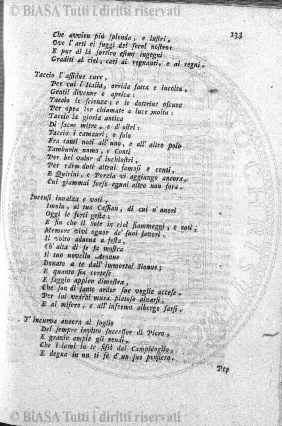 © BiASA Tutti i diritti riservati
133
Che avvien più splenda, e lustri,
Ove l'arti ei fuggì del secol nostro:
E pur di lì sortiro esimi ingegni
Graditi al ciel, cari ai regnanti, e ai regni.
Taccio l'assidue cure,
Per cui l'Italia, orrida fatta e incolta,
Gentil divenne e aprica:
Taccio le scienze, e le dottrine oscure
Per opra lor chiamate a luce molta:
Taccio la gloria antica
Di sacre mitre, e d'ostri:
Taccio i camauri; e solo
Fra tanti noti all'uno, e all'altro polo
Tamburin nomo, e Conti
Per bel valor d'inchiostri,
Per rare doti altrui famosi e conti,
E Quirini, e Porzia vi aggiungo ancora,
Cui giammai forse egual altro non fora.
Incensi innalza e voti,
Imola, al tuo Cassian, di cui n'onori
Oggi le forti gesta:
E fin che il Sole in ciel fiammeggi, e roti;
Memore vivi ognor de' suoi favori.
Il volto adorna a festa,
Ch'alta di te fa mostra
Il tuo novello Aronne
Donato a te dall'immortal Sionne;
E quanto sia cortese
E saggio appien dimostra,
Che son di santo ardor sue voglie accese.
Per lui vedrai mura pietose alzarsi,
E al misero, e all'infermo albergo farsi.
T'incurva ancora al soglio
Del sempre invitto successor di Piero,
E grazie ample gli rendi,
Che i lumi in te fissò dal Campidoglio,
E degna in un ti fè d'un suo pensiero.
Dep
© BiASA Tutti i diritti riservati